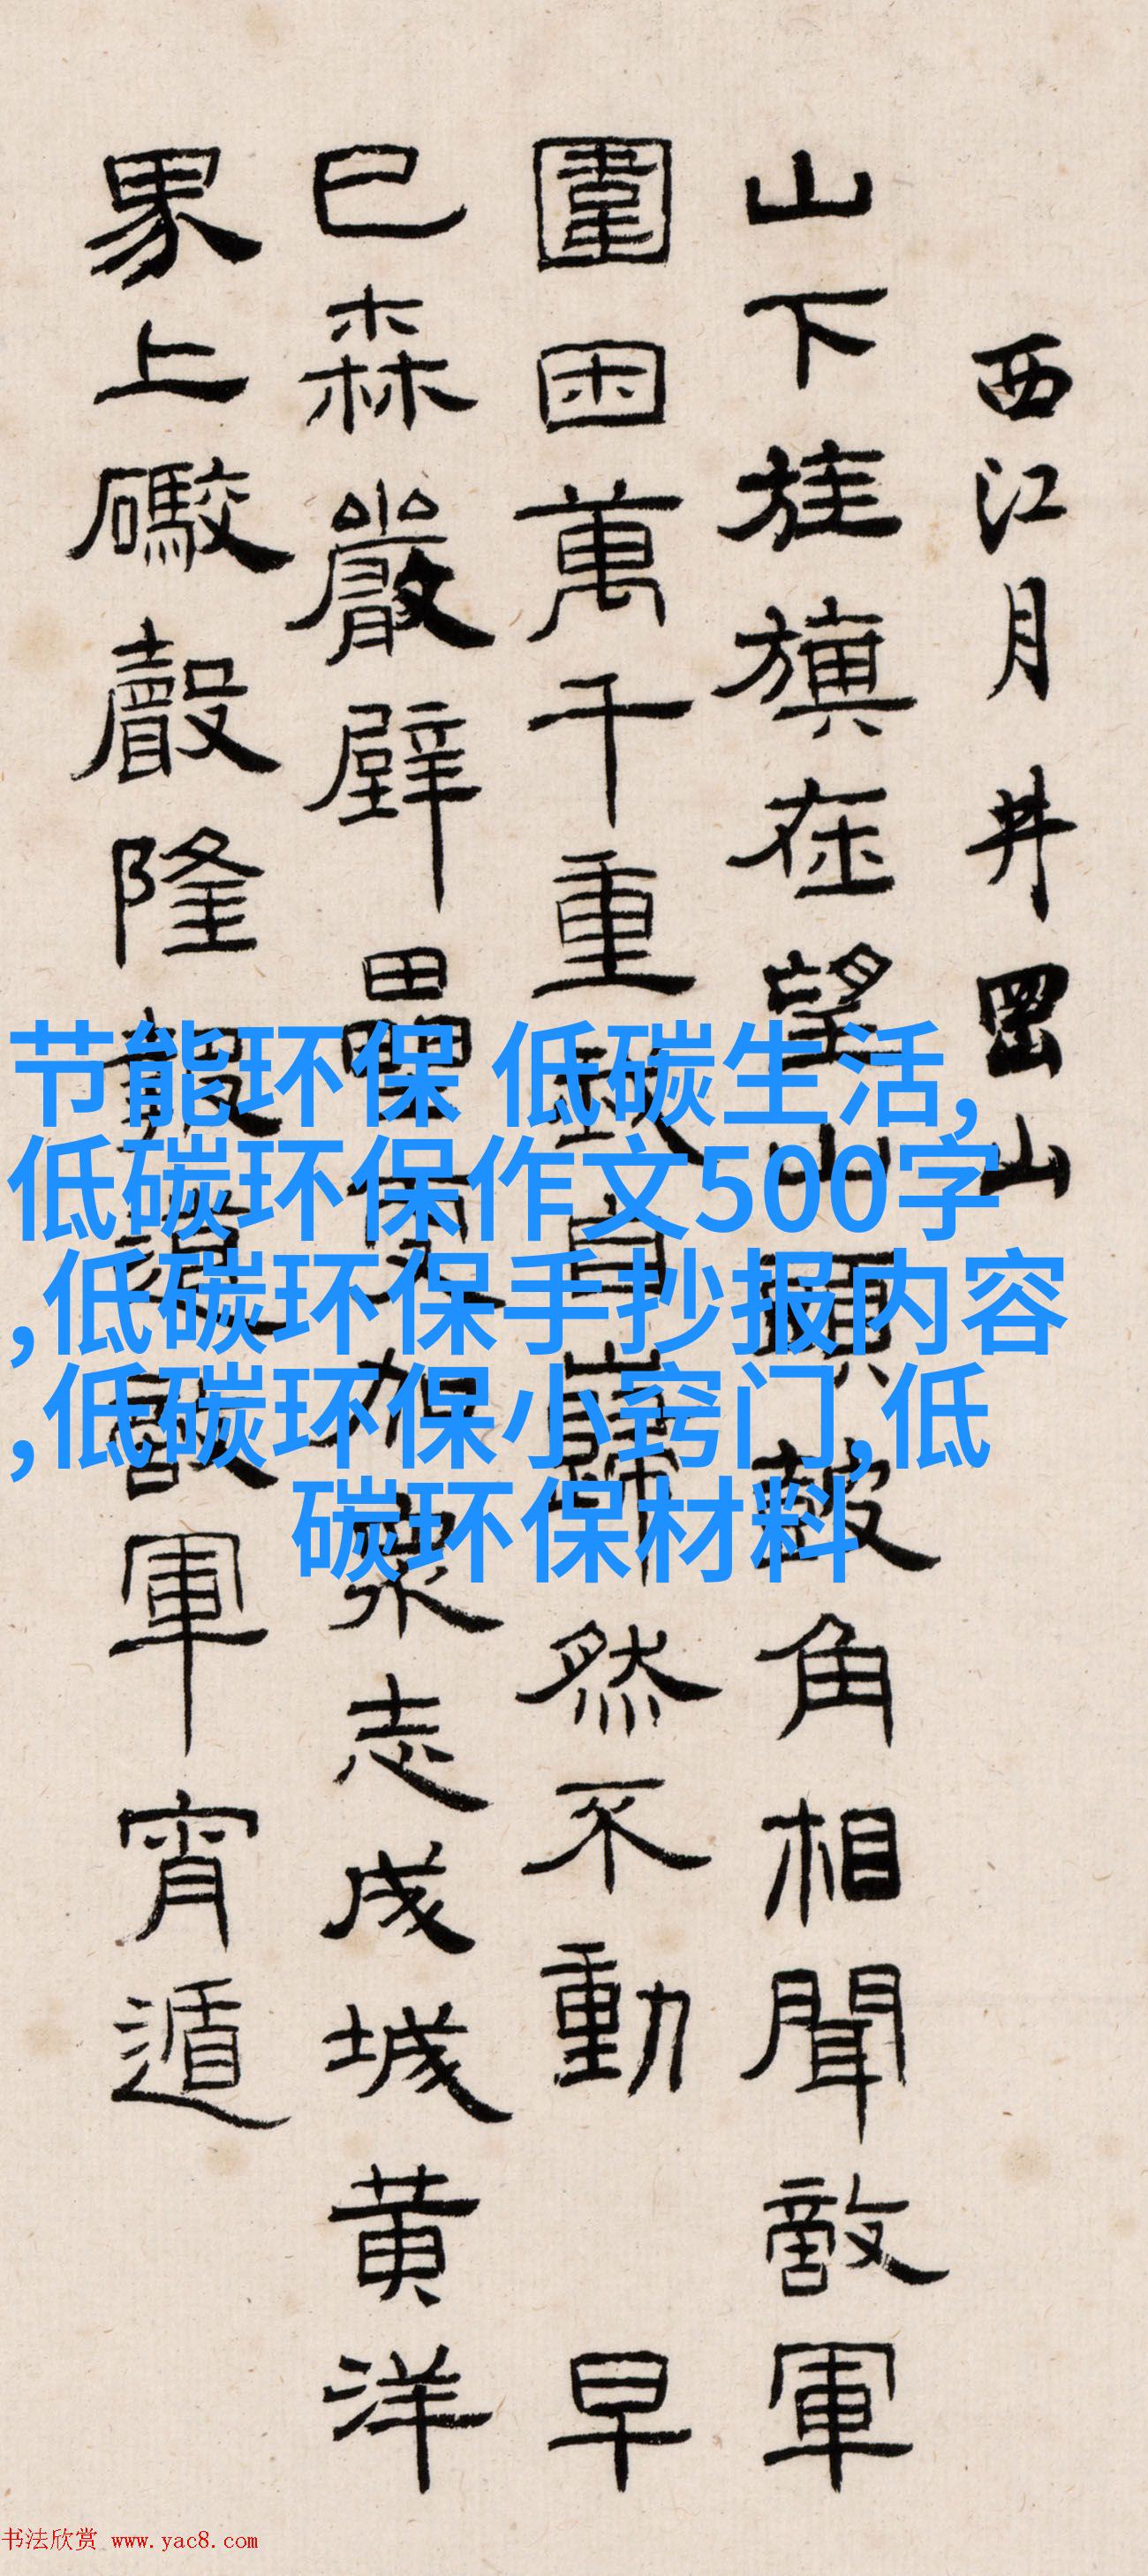 西江月 井岡山
山下旌旗在望山頭鼓角相聞敵軍
圍困萬千重我自巋然不動 早
已森嚴壁壘更加眾志成城黄洋
界上礮聲隆報道敵軍宵遁
节能环保 低碳生活,
低碳环保作文500字
,低碳环保手抄报内容
,低碳环保小窍门,低
碳环保材料
书法欣赏 www.yac8.com